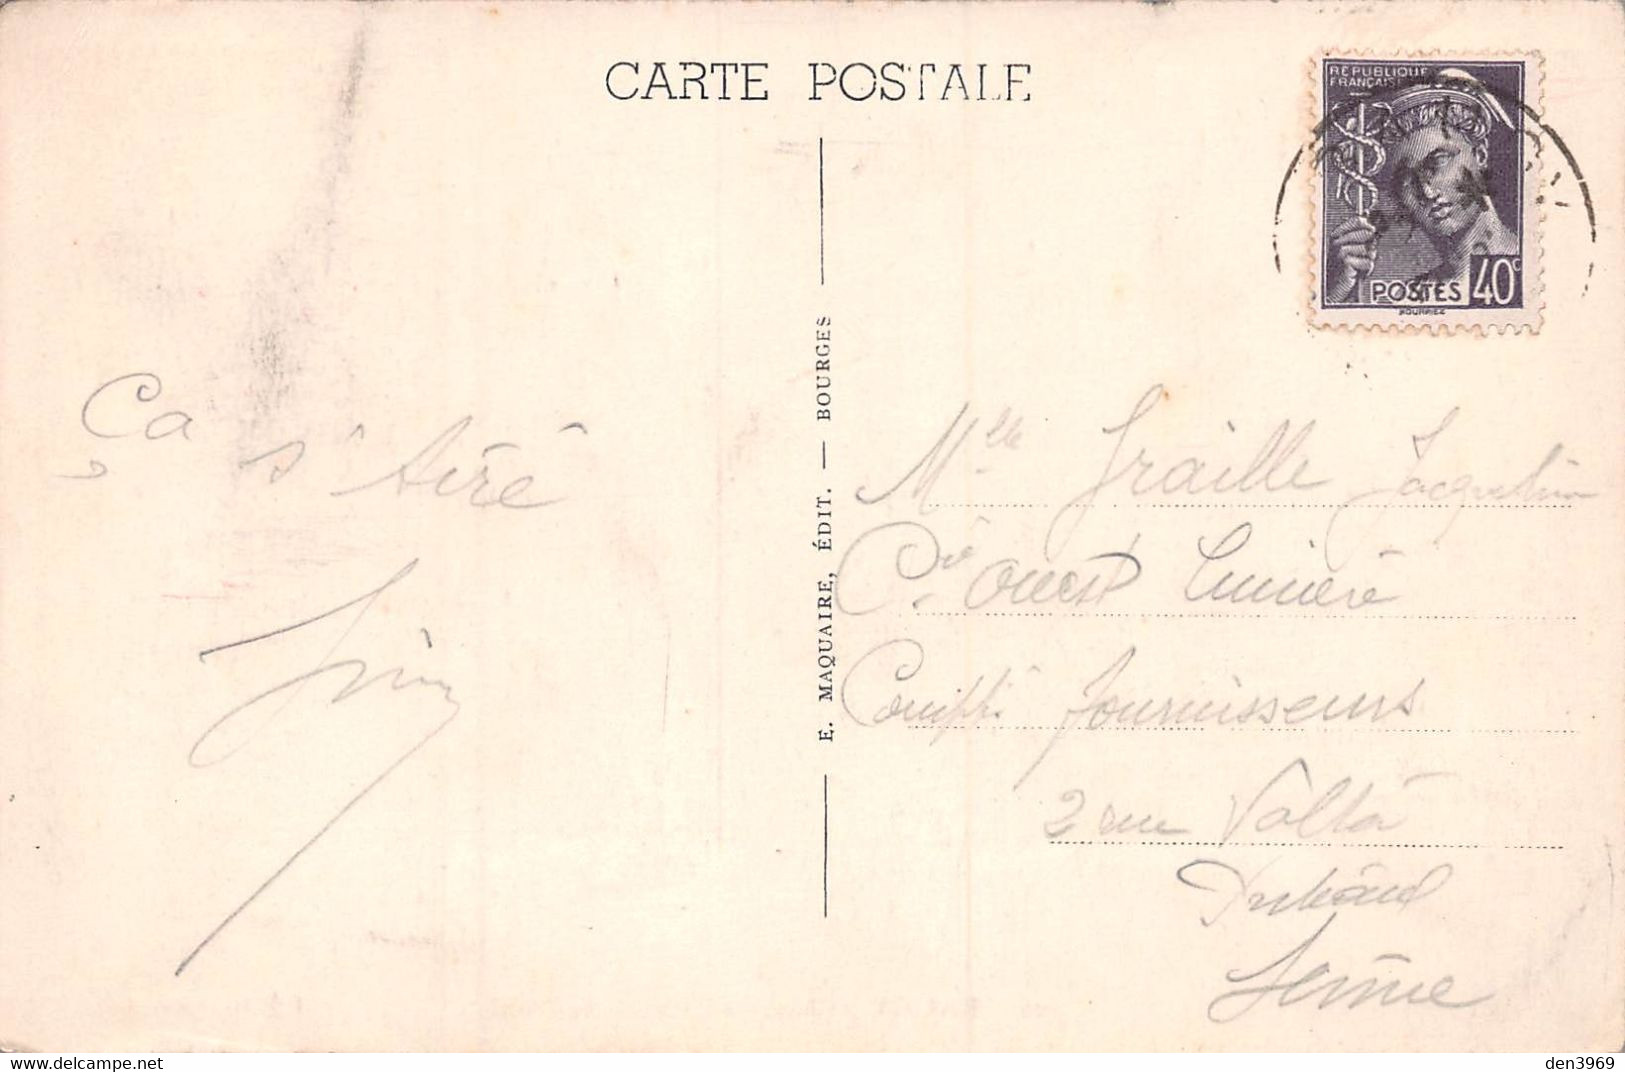 CARTE POSTALE
RÉPUBLIQUE
FRANÇAISE
POSTES 40c
E. MAQUAIRE, ÉDIT. — BOURGES
Ça s'tire
Mlle Fraille Jacqueline
Cie Ouest Lumière
Compté Fournisseurs
2 rue Volta
Puteaux
Seine
delcampe.net
den3969